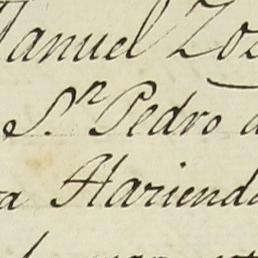 Manuel Zoz
S.n Pedro d
a Hariend